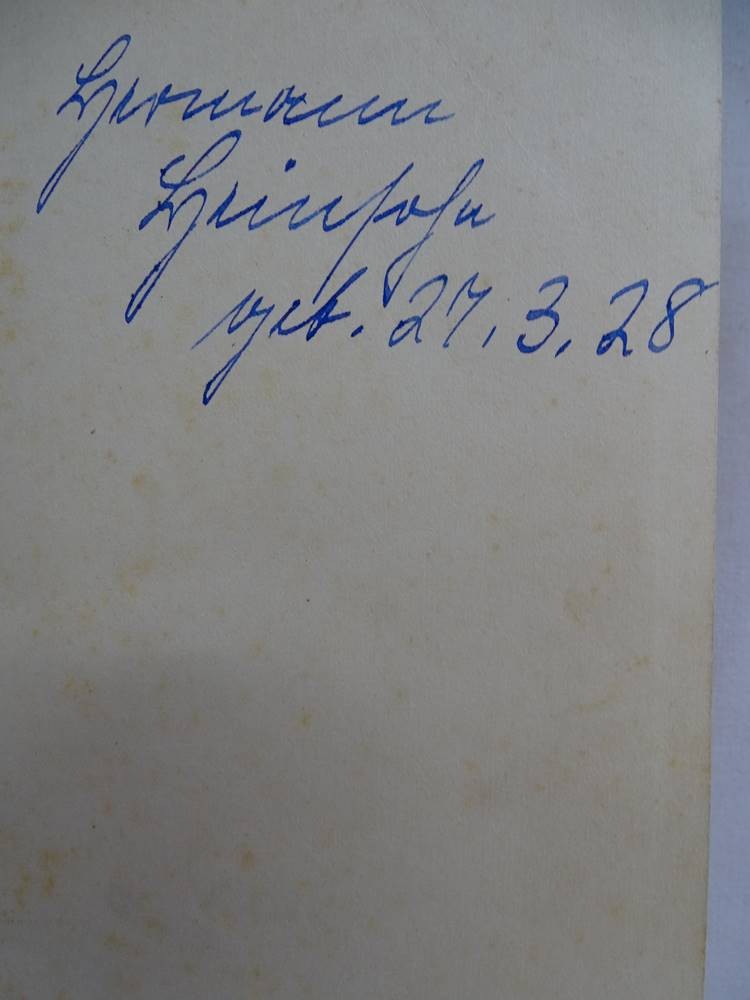 Hermann
Heinsohn
geb. 27.3.28